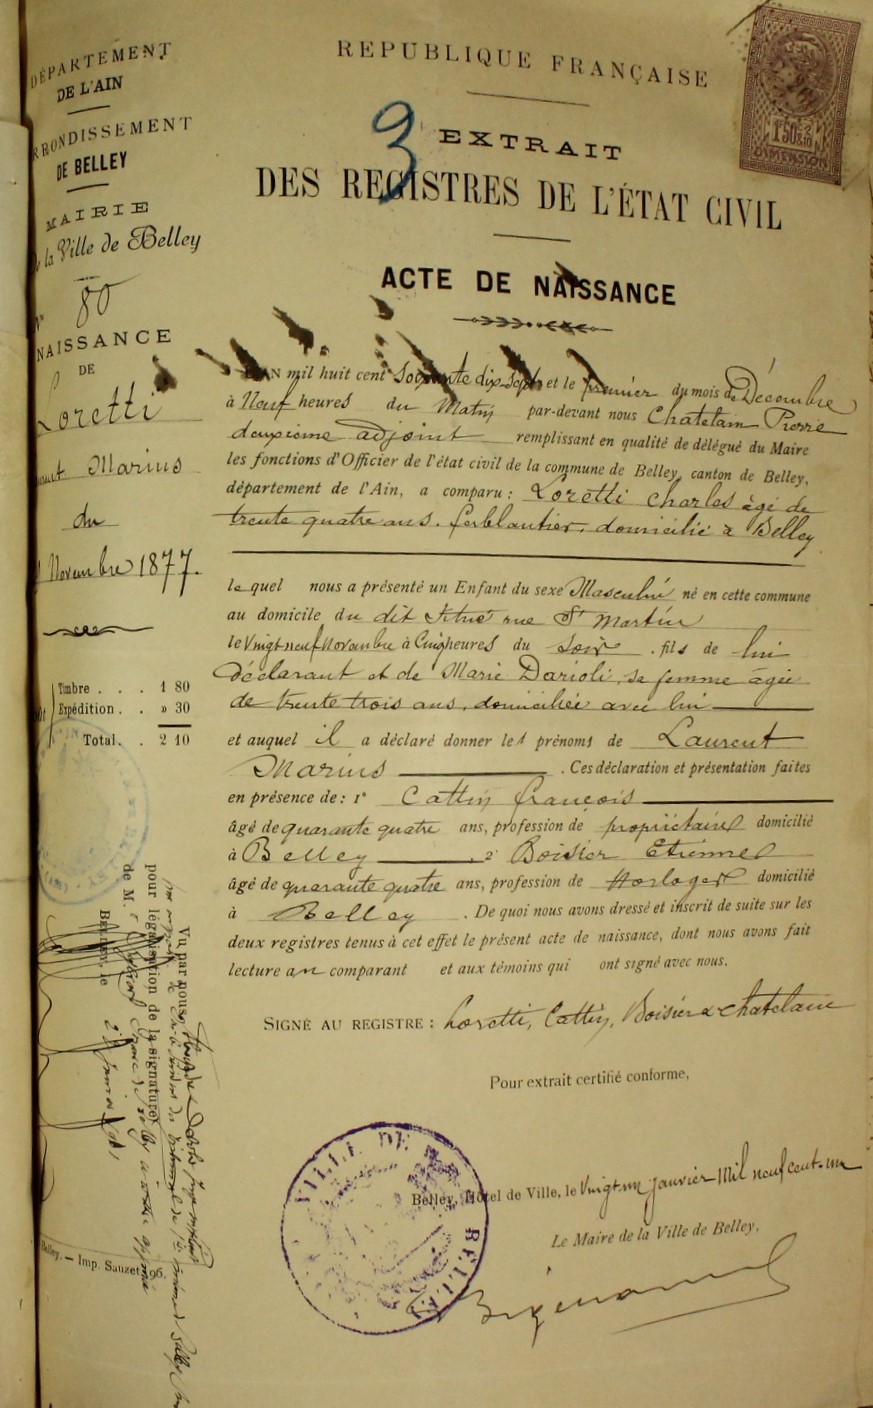 DÉPARTEMENT
DE L'AIN
ARRONDISSEMENT
DE BELLEY
MAIRIE
de la Ville de Belley
N° 80
NAISSANCE
DE
Loretti
Marius
du
Novembre 1877.
Timbre . . . 1 80
Expédition . . » 30
Total. . 2 10
RÉPUBLIQUE FRANÇAISE
3
EXTRAIT
DES REGISTRES DE L'ÉTAT CIVIL
1F50c 2/10
DIMENSION
ACTE DE NAISSANCE
L'AN mil huit cent soixante dix sept et le premier du mois de Décembre
à Neuf heures du Matin par-devant nous Chatelain Pierre
deuxième adjoint remplissant en qualité de délégué du Maire
les fonctions d'Officier de l'état civil de la commune de Belley, canton de Belley,
département de l'Ain, a comparu : Loretti Charles âgé de
trente quatre ans. ferblantier, domicilié à Belley
lequel nous a présenté un Enfant du sexe Masculin né en cette commune
au domicile du dit situé rue St Martin
le Vingt neuf Novembre à Cinq heures du soir . fils de lui
déclarant et de Marie Darioli, sa femme âgée
de trente trois ans, domiciliée avec lui
et auquel il a déclaré donner les prénoms de Laurent
Marius . Ces déclaration et présentation faites
en présence de : 1° Cattin françois
âgé de quarante quatre ans, profession de propriétaire domicilié
à Belley , 2° Boisier Etienne
âgé de quarante quatre ans, profession de Horloger domicilié
à Belley . De quoi nous avons dressé et inscrit de suite sur les
deux registres tenus à cet effet le présent acte de naissance, dont nous avons fait
lecture au comparant et aux témoins qui ont signé avec nous.
SIGNÉ AU REGISTRE : Loretti, Cattin, Boisier & Chatelain
Pour extrait certifié conforme,
Belley, Hôtel de Ville, le Vingt un janvier Mil neuf cent un
Le Maire de la Ville de Belley,
VILLE DE BELLEY
Vu par nous
pour légalisation de la signature
de M.
BELLEY, le
Belley. — Imp. Sauzet 96.